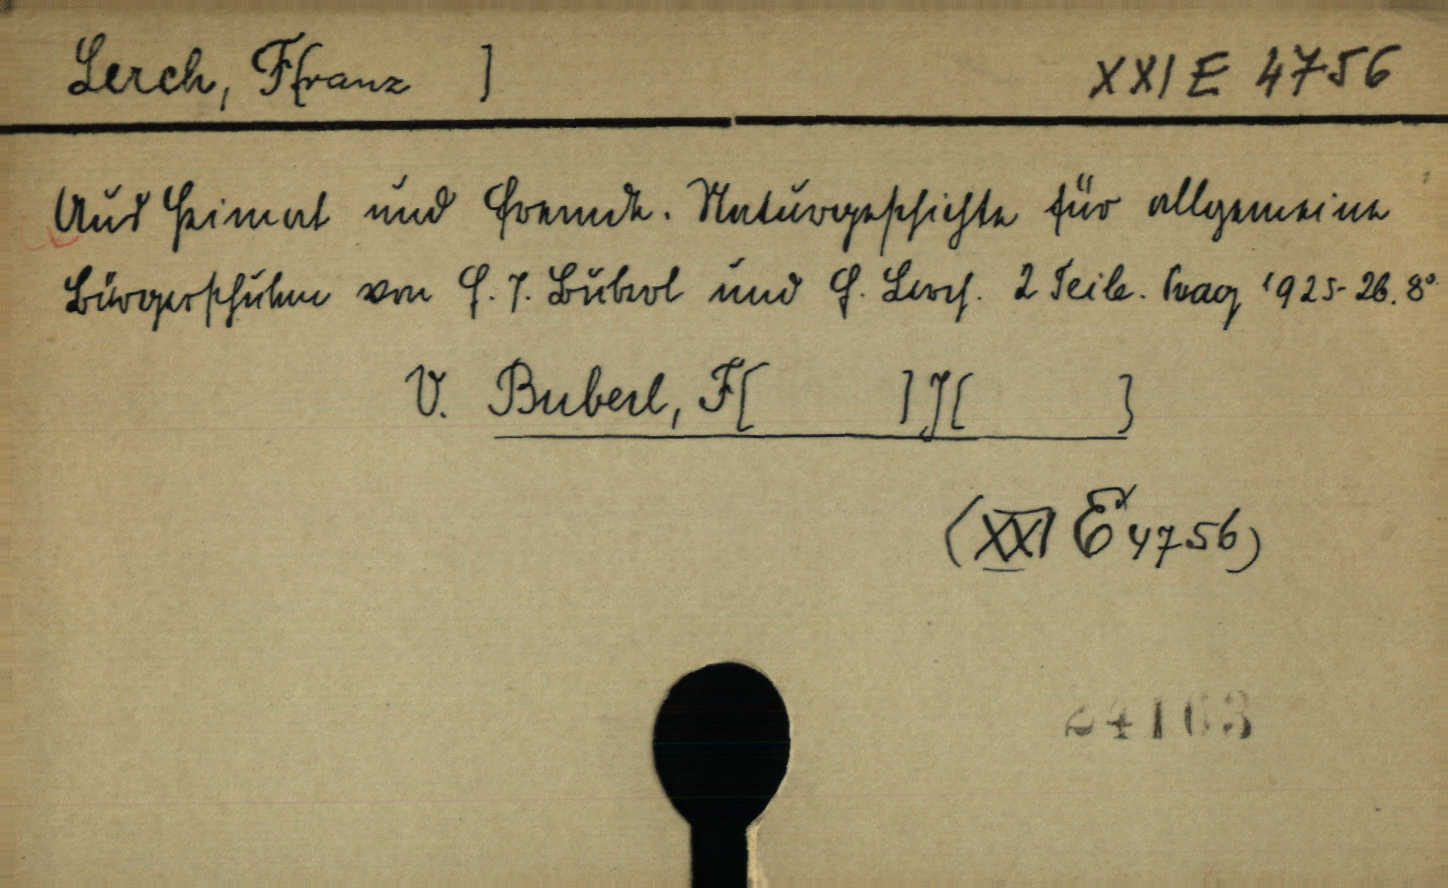 Lerch, F[ranz ] XXI E 4756
Aus Heimat und Fremde. Naturgeschichte für allgemeine
Bürgerschulen von F. J. Buberl und F. Lerch. 2 Teile. Prag 1925-26. 8°
V. Buberl, F[ ] J[ ]
(XXI E 4756)
24163